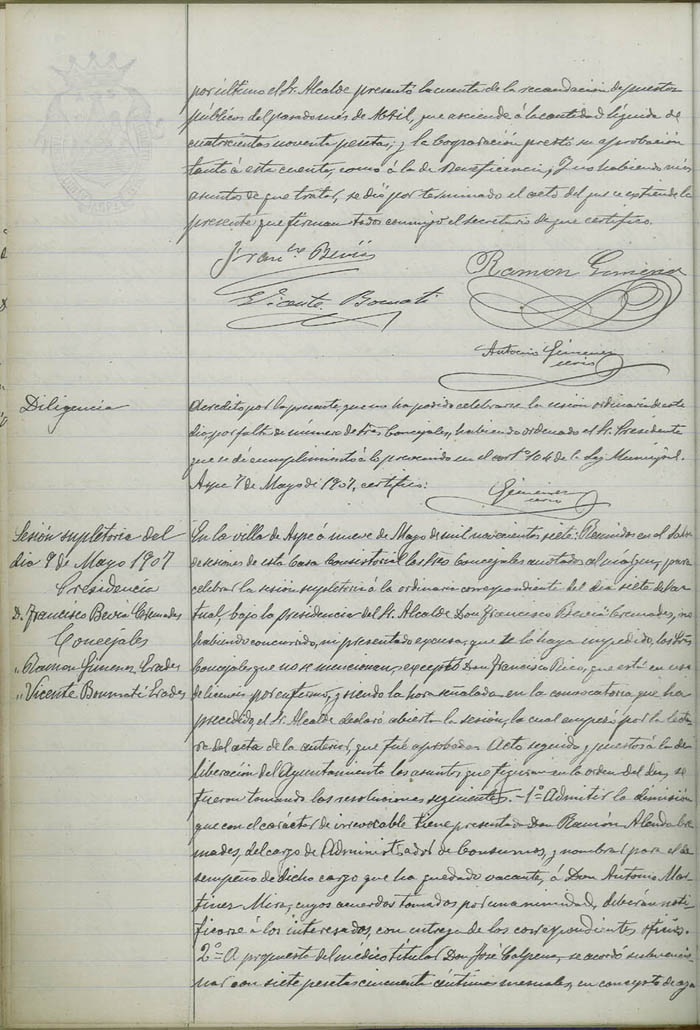 por último el Sr. Alcalde presentó la cuenta de la recaudación de puestos
públicos del pasado mes de Abril, que asciende á la cantidad líquida de
cuatrocientas noventa pesetas; y la Corporación prestó su aprobación
tanto á esta cuenta, como á la de Beneficencia; Y no habiendo más
asuntos de que tratar, se dió por terminado el acto del que se extiende la
presente que firman todos conmigo el secretario de que certifico.
Fran.co Bevià
Ramon Gimenez
Vicente Bonmati
Antonio Gimenez
Diligencia
Acredito por la presente, que no ha podido celebrarse la sesión ordinaria de este
dia, por falta de número de Sres. Concejales, habiendo ordenado el Sr. Presidente
que se dé cumplimiento á lo prevenido en el artº 104 de la Ley Municipal.
Aspe 7 de Mayo de 1907, certifico:
Gimenez
Sesión supletoria del
dia 9 de Mayo 1907
Presidencia
D. Francisco Bevià Cremades
Concejales
" Ramon Gimenez Erades
" Vicente Bonmati Erades
En la villa de Aspe á nueve de Mayo de mil novecientos siete: Reunidos en el Salón
de sesiones de esta Casa Consistorial los Sres Concejales anotados al márgen, para
celebrar la sesión supletoria á la ordinaria correspondiente del dia siete del ac-
tual, bajo la presidencia del Sr. Alcalde Don Francisco Bevià Cremades, no
habiendo concurrido, ni presentado excusas que se lo haya impedido, los Sres
Concejales que no se mencionan, excepto Don Francisco Rico, que está en uso
de licencia por enfermo, y siendo la hora señalada en la convocatoria que ha
precedido, el Sr. Alcalde declaró abierta la sesión, la cual empezó por la lectu-
ra del acta de la anterior, que fué aprobada. Acto seguido y puestos á la de-
liberación del Ayuntamiento los asuntos que figuran en la orden del dia, se
fueron tomando las resoluciones siguientes. - 1º = Admitir la dimisión
que con el carácter de irrevocable tiene presentada Don Ramón Alenda Cre-
mades, del cargo de Administrador de Consumos, y nombrar para el de-
sempeño de dicho cargo que ha quedado vacante, á Don Antonio Mar-
tinez Mira, cuyos acuerdos tomados por unanimidad, deberán noti-
ficarse á los interesados, con entrega de los correspondientes oficios.
2º = A propuesta del médico titular Don José Calpena, se acordó subvencio-
nar con siete pesetas cincuenta céntimos mensuales, en concepto de ayu